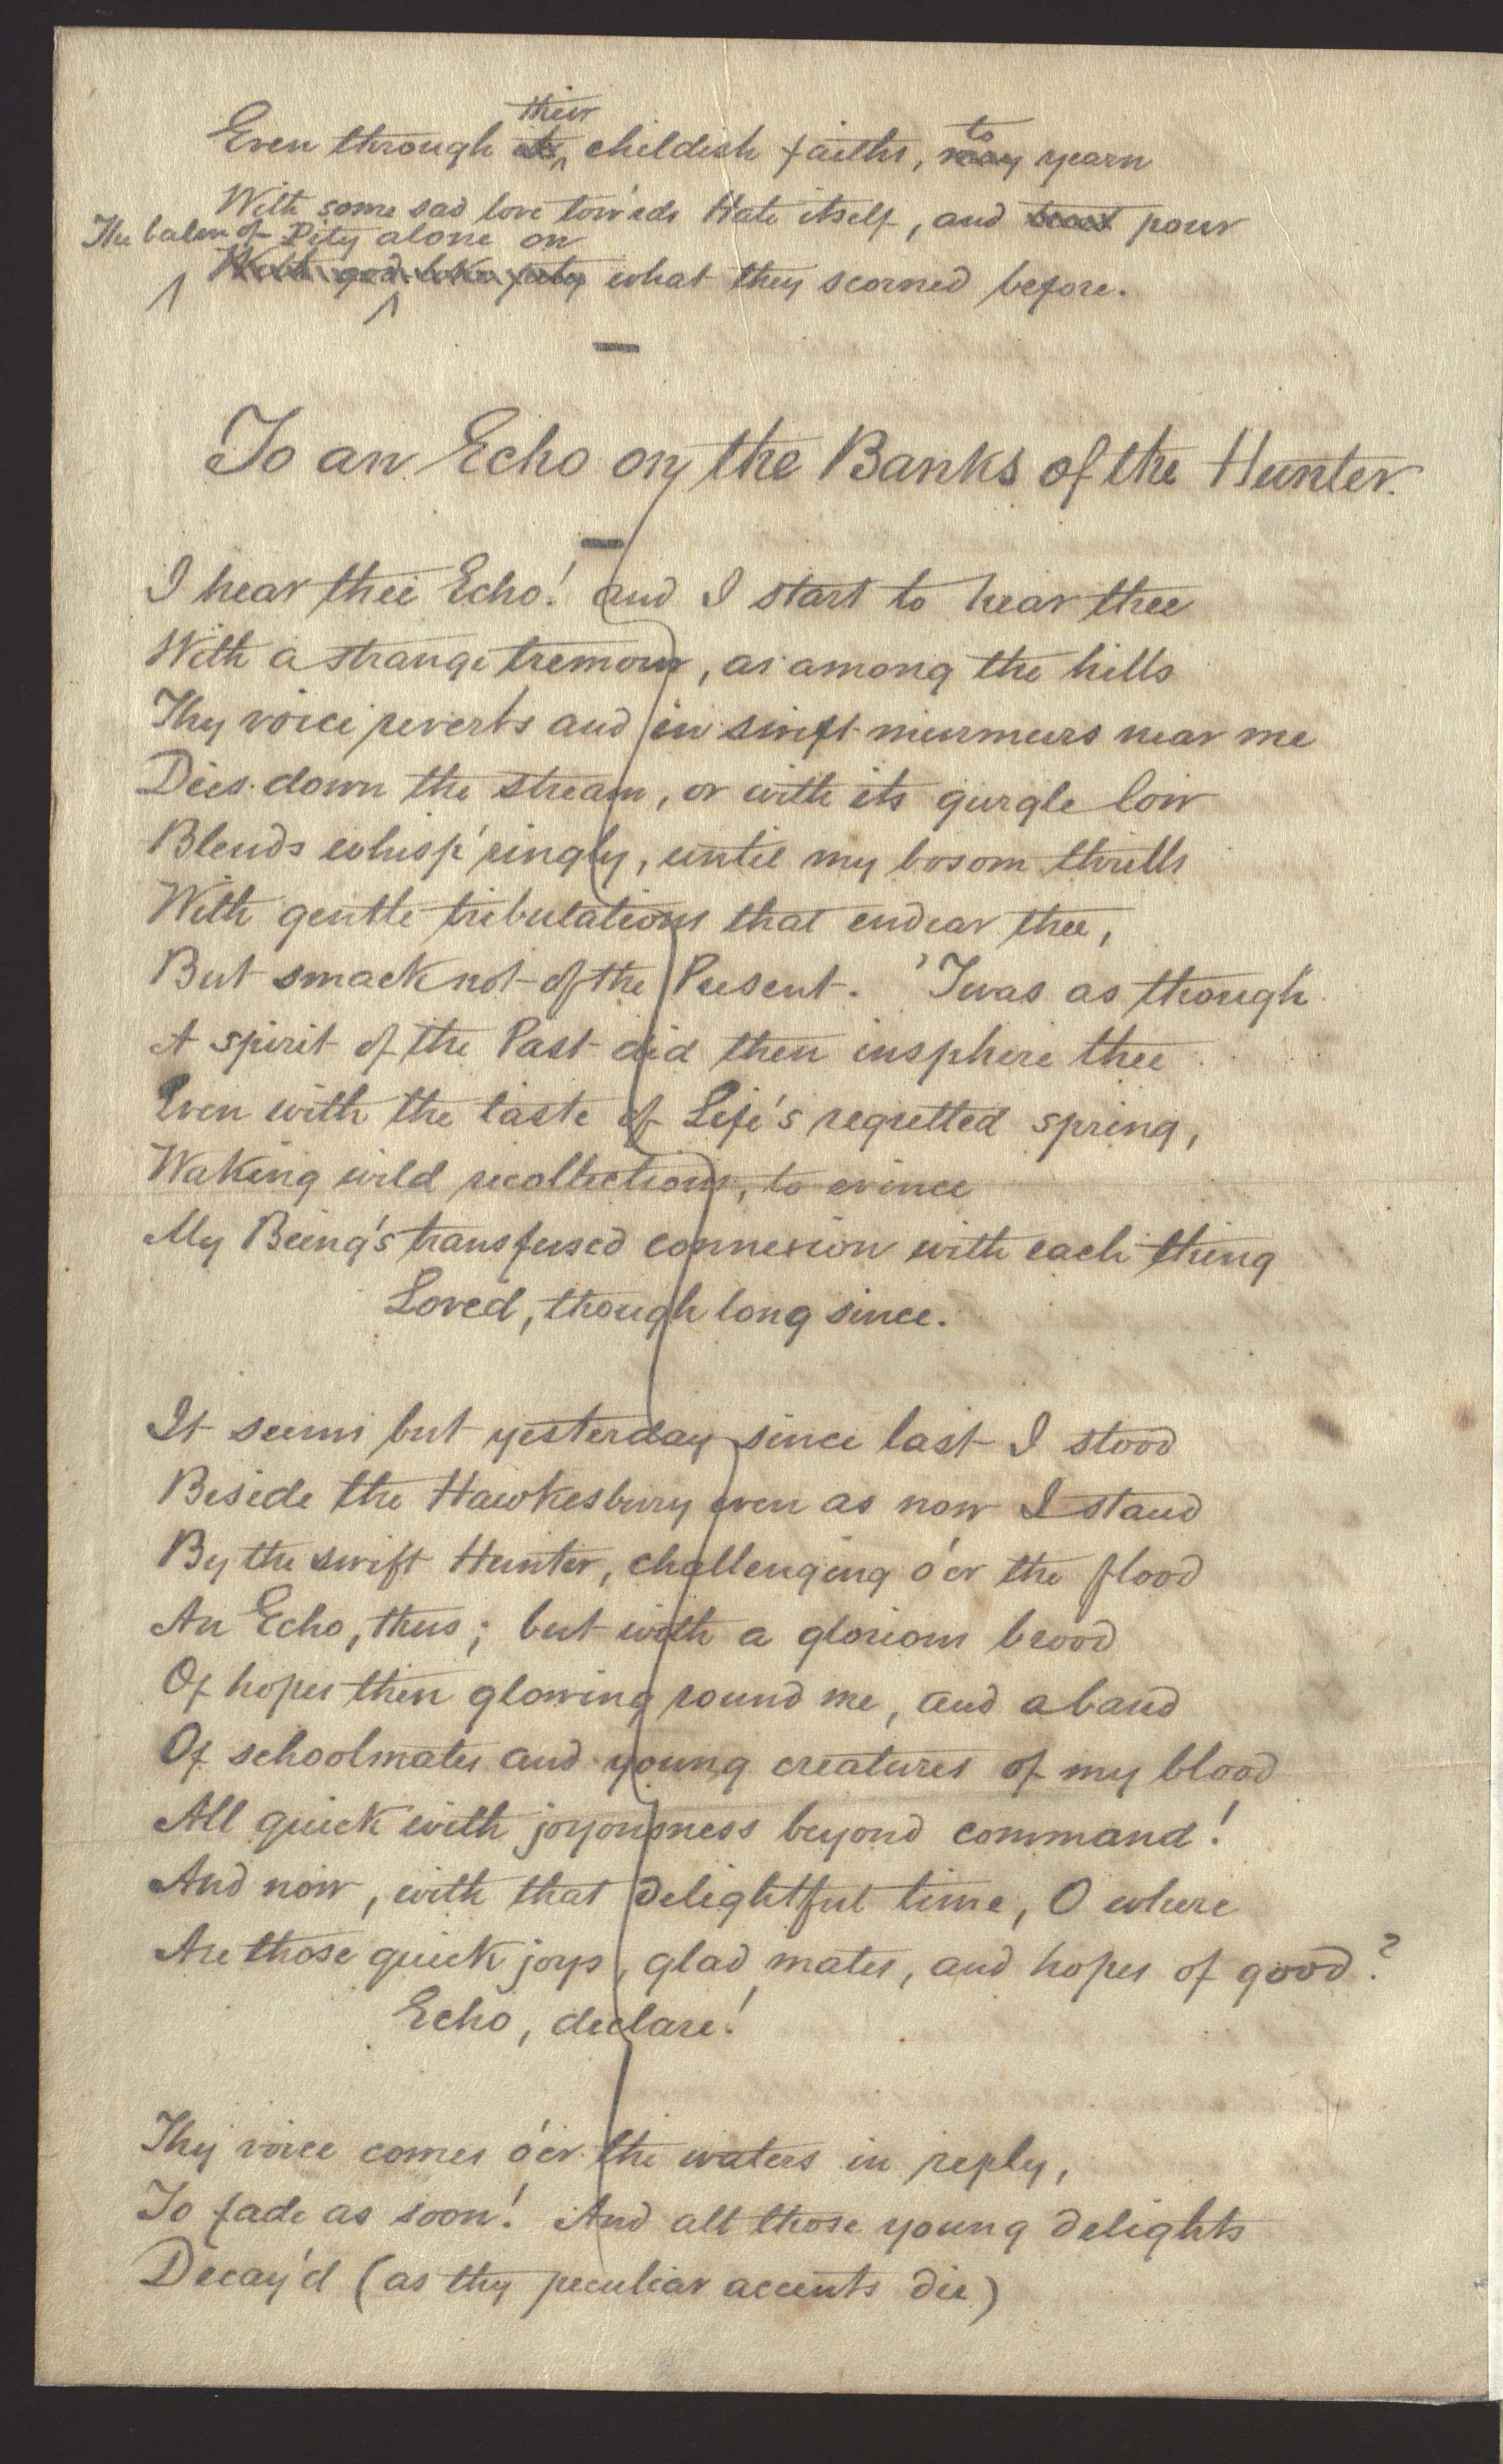 Even through its their childish faiths, may to yearn
With some sad love tow'rds Hate itself, and pour
The balm of Pity alone on
With god-like pity what they scorned before.
To an Echo on the Banks of the Hunter.
I hear thee Echo! and I start to hear thee
With a strange tremour, as among the hills
Thy voice reverts and in swift murmurs near me
Dies down the stream, or with its gurgle low
Blends whisp'ringly, until my bosom thrills
With gentle tribulations that endear thee,
But smack not of the Present. 'Twas as though
A spirit of the Past did then insphere thee
Even with the taste of Life's regretted spring,
Waking wild recollections, to evince
My Being's transfused connexion with each thing
Loved, though long since.
It seems but yesterday since last I stood
Beside the Hawkesbury even as now I stand
By the swift Hunter, challenging o'er the flood
An Echo, thus; but with a glorious brood
Of hopes then glowing round me, and a band
Of schoolmates and young creatures of my blood
All quick with joyousness beyond command!
And now, with that delightful time, O where
Are those quick joys, glad mates, and hopes of good?
Echo, declare!
Thy voice comes o'er the waters in reply,
To fade as soon! And all those young delights
Decay'd (as thy peculiar accents die)